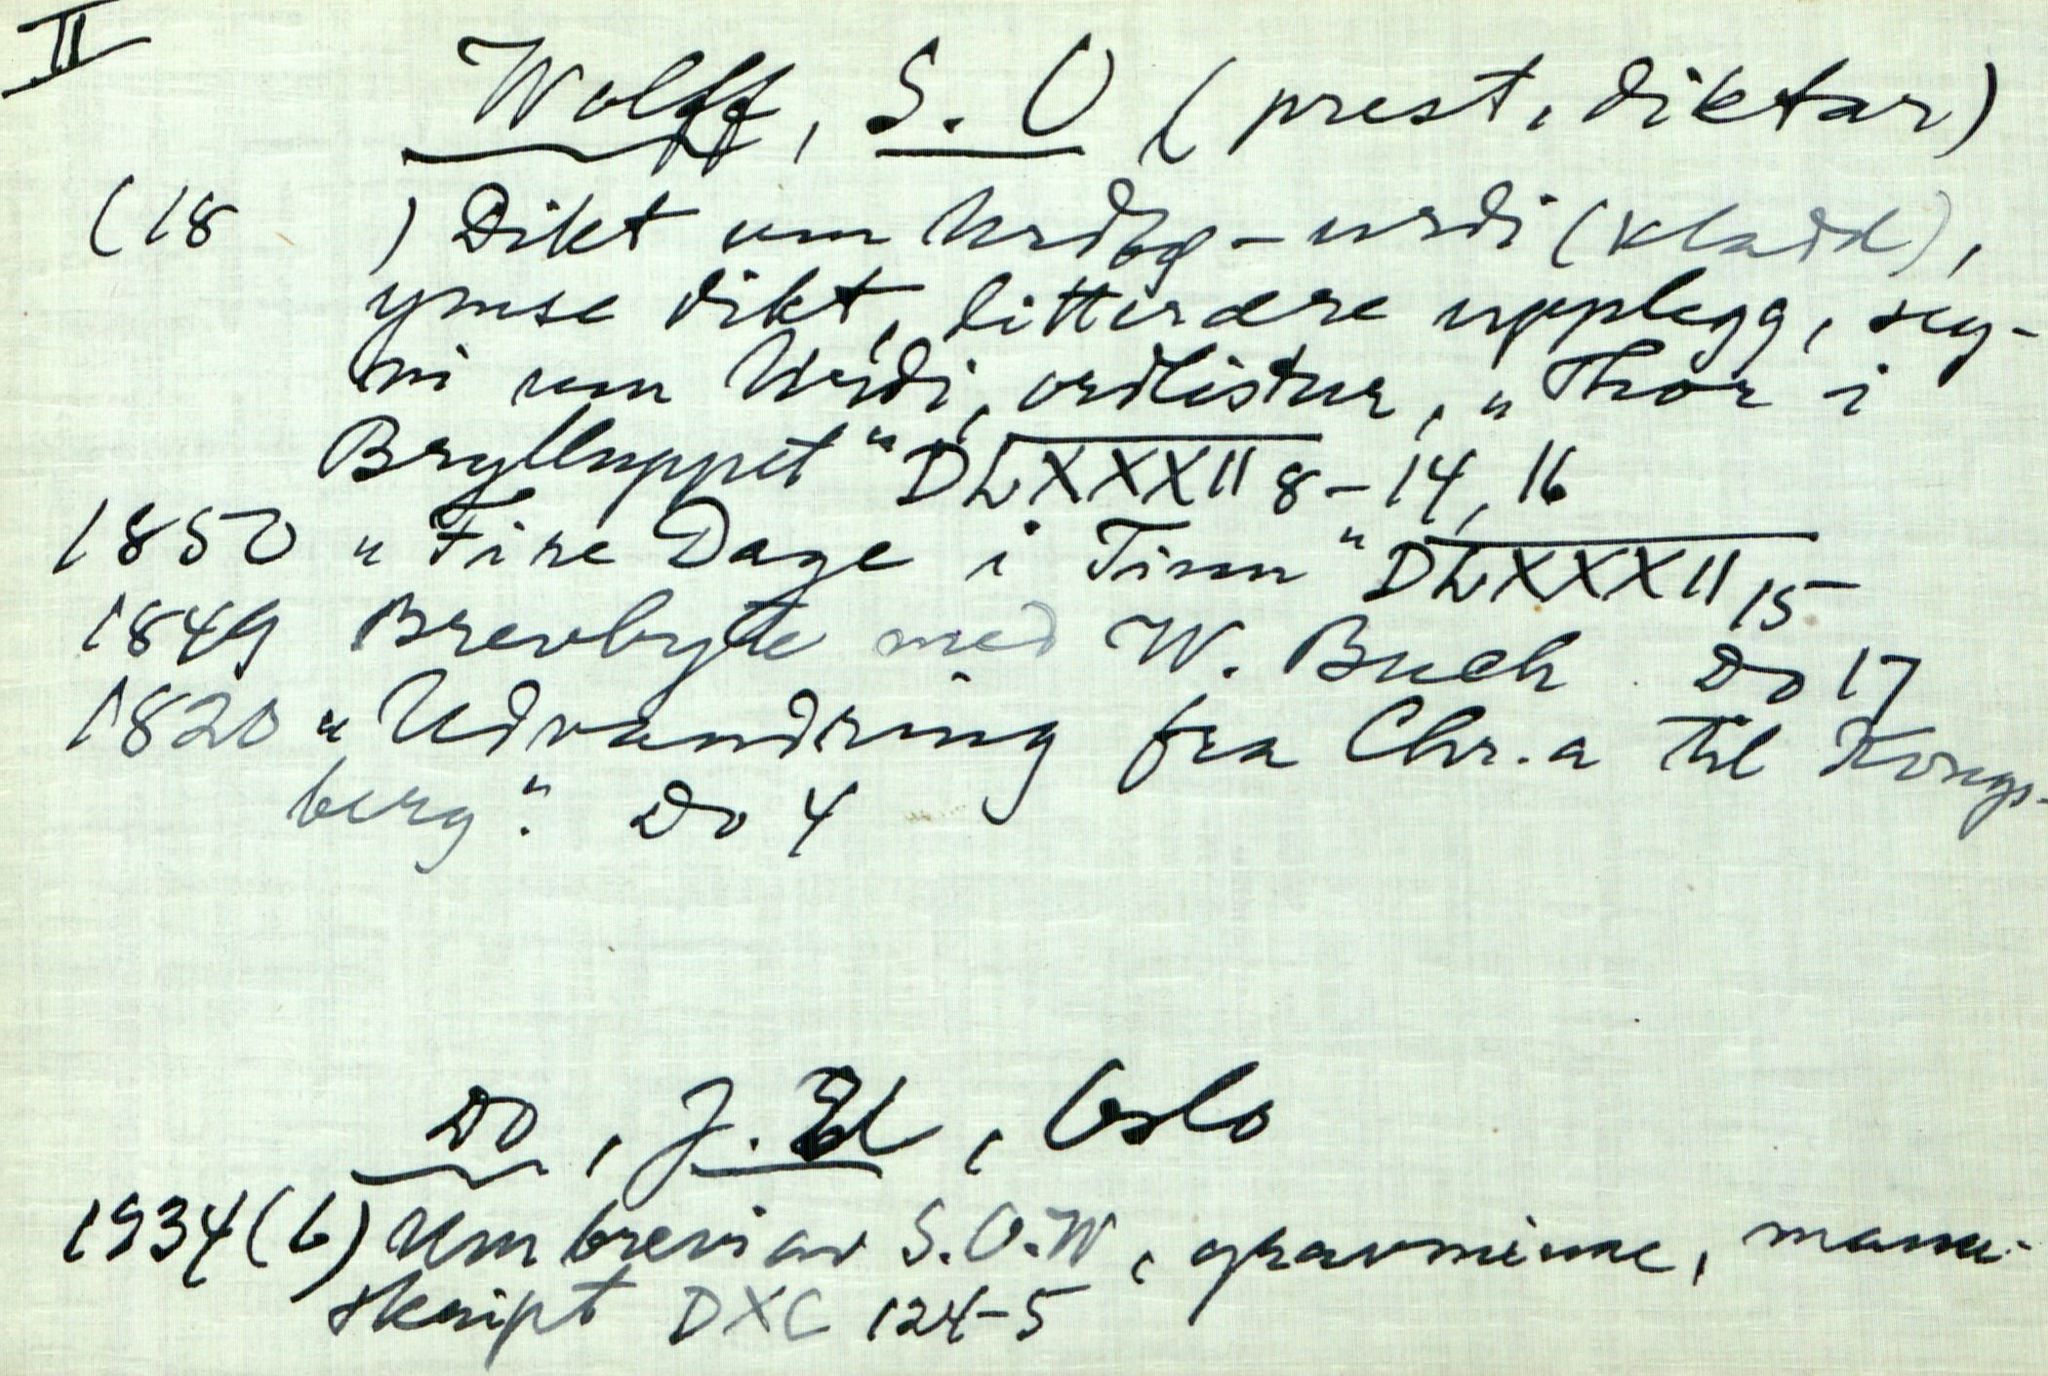 II
Wolff, S. O (prest, diktar)
(18 ) Dikt um Urdbø-urdi (kladd),
ymse dikt, litterære upplegg, seg-
ni um Urdi, ordlistur, "Thor i
Brylluppet" DLXXXII 8-14, 16
1850 "Fire Dage i Tinn" DLXXXII 15
1849 Brevbyte med W. Buch Do 17
1820 "Udvandring fra Chr.a til Kongs-
berg". Do 4
Do, J. , Oslo
1934 (6) Um brevi av S.O.W, gravminne, manu-
skript DXC 124-5